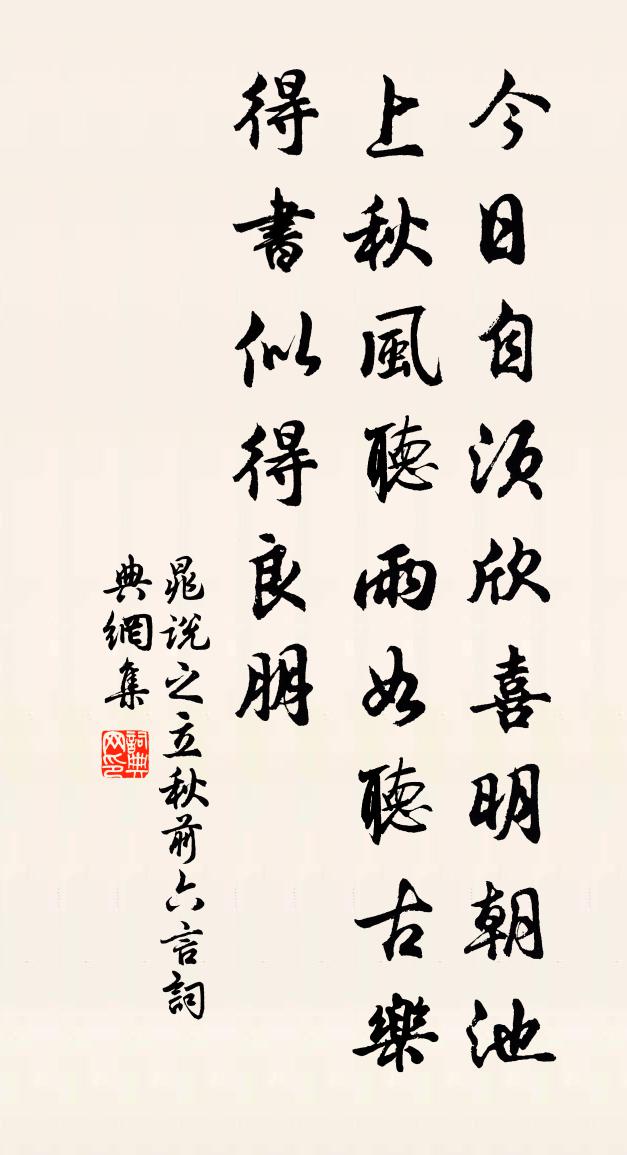 今日自須欣喜明朝池
上秋風聽雨如聽古樂
得書似得良朋
晁説之立秋前六言詞
典網集
詞典網印